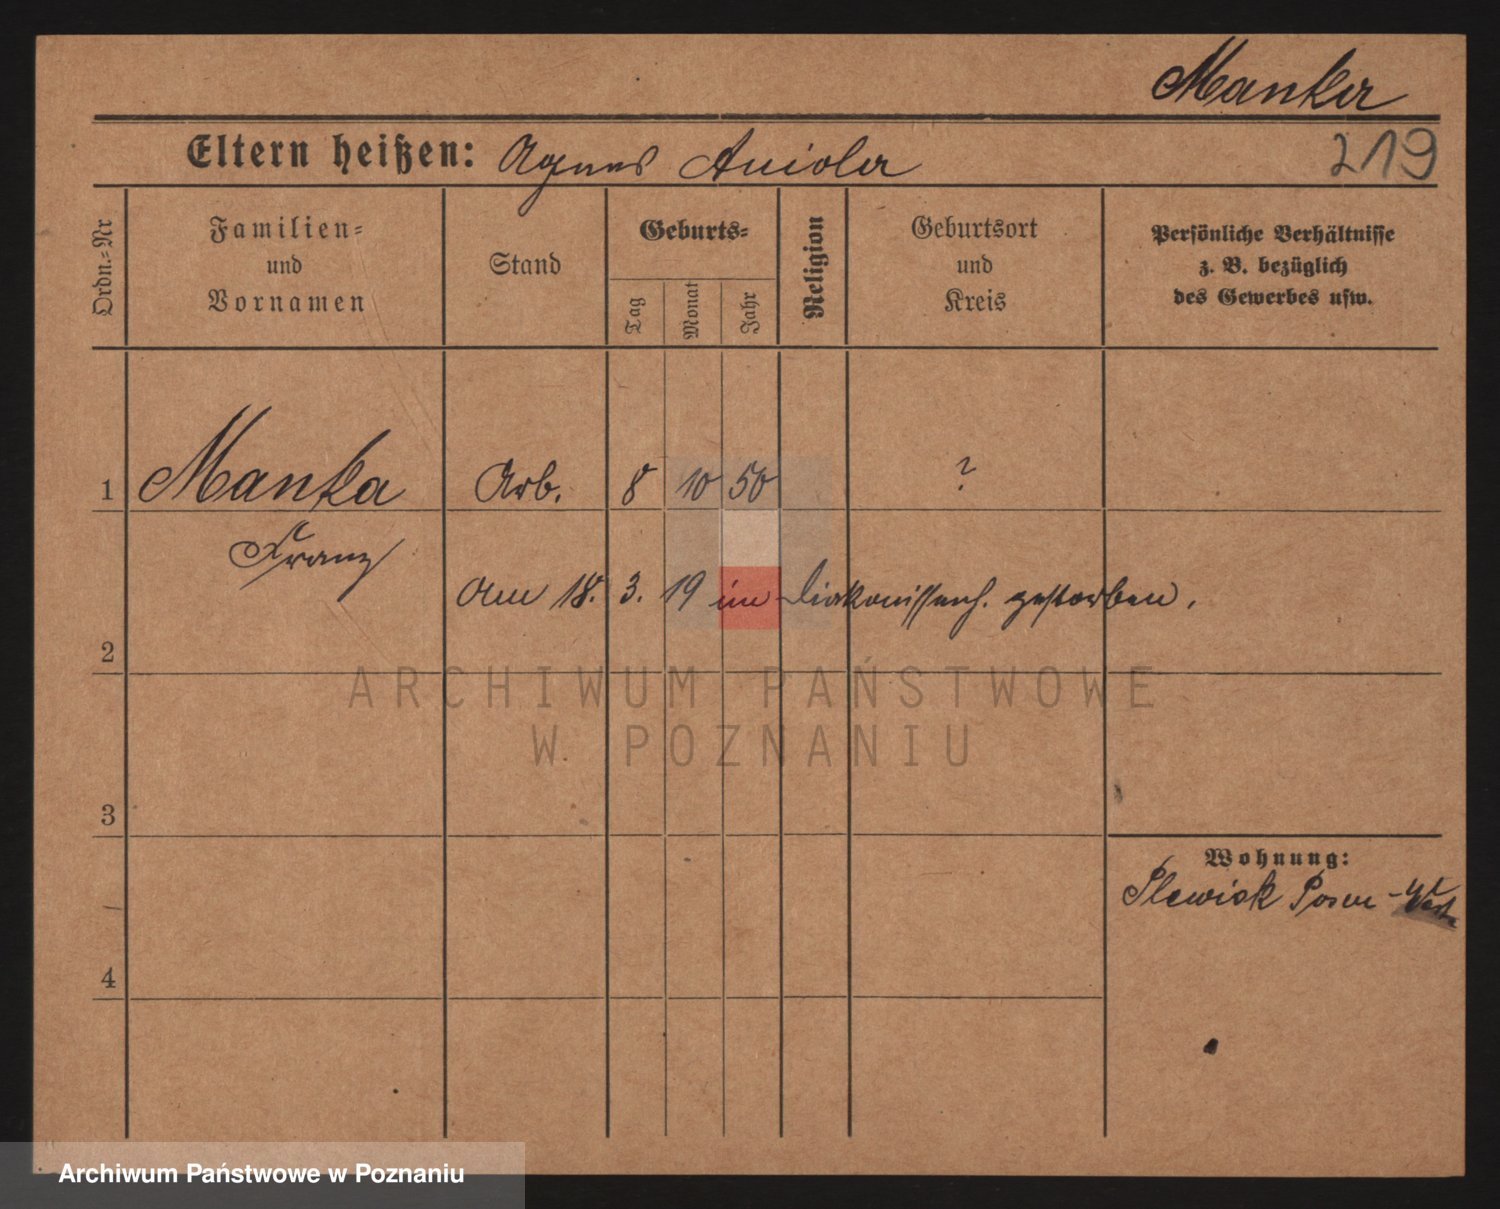 Manka
219
Eltern heißen: Agnes Aniola
Ordn.-Nr
Familien-
und
Vornamen
Stand
Geburts-
Tag
Monat
Jahr
Religion
Geburtsort
und
Kreis
Persönliche Verhältnisse
z. B. bezüglich
des Gewerbes usw.
1 Manka Arb. 8 10 50 ?
Franz
am 18. 3. 19 im Diakonissenh. gestorben.
2
ARCHIWUM PAŃSTWOWE
W POZNANIU
3
Wohnung:
Plewisk Posen-West
4
Archiwum Państwowe w Poznaniu